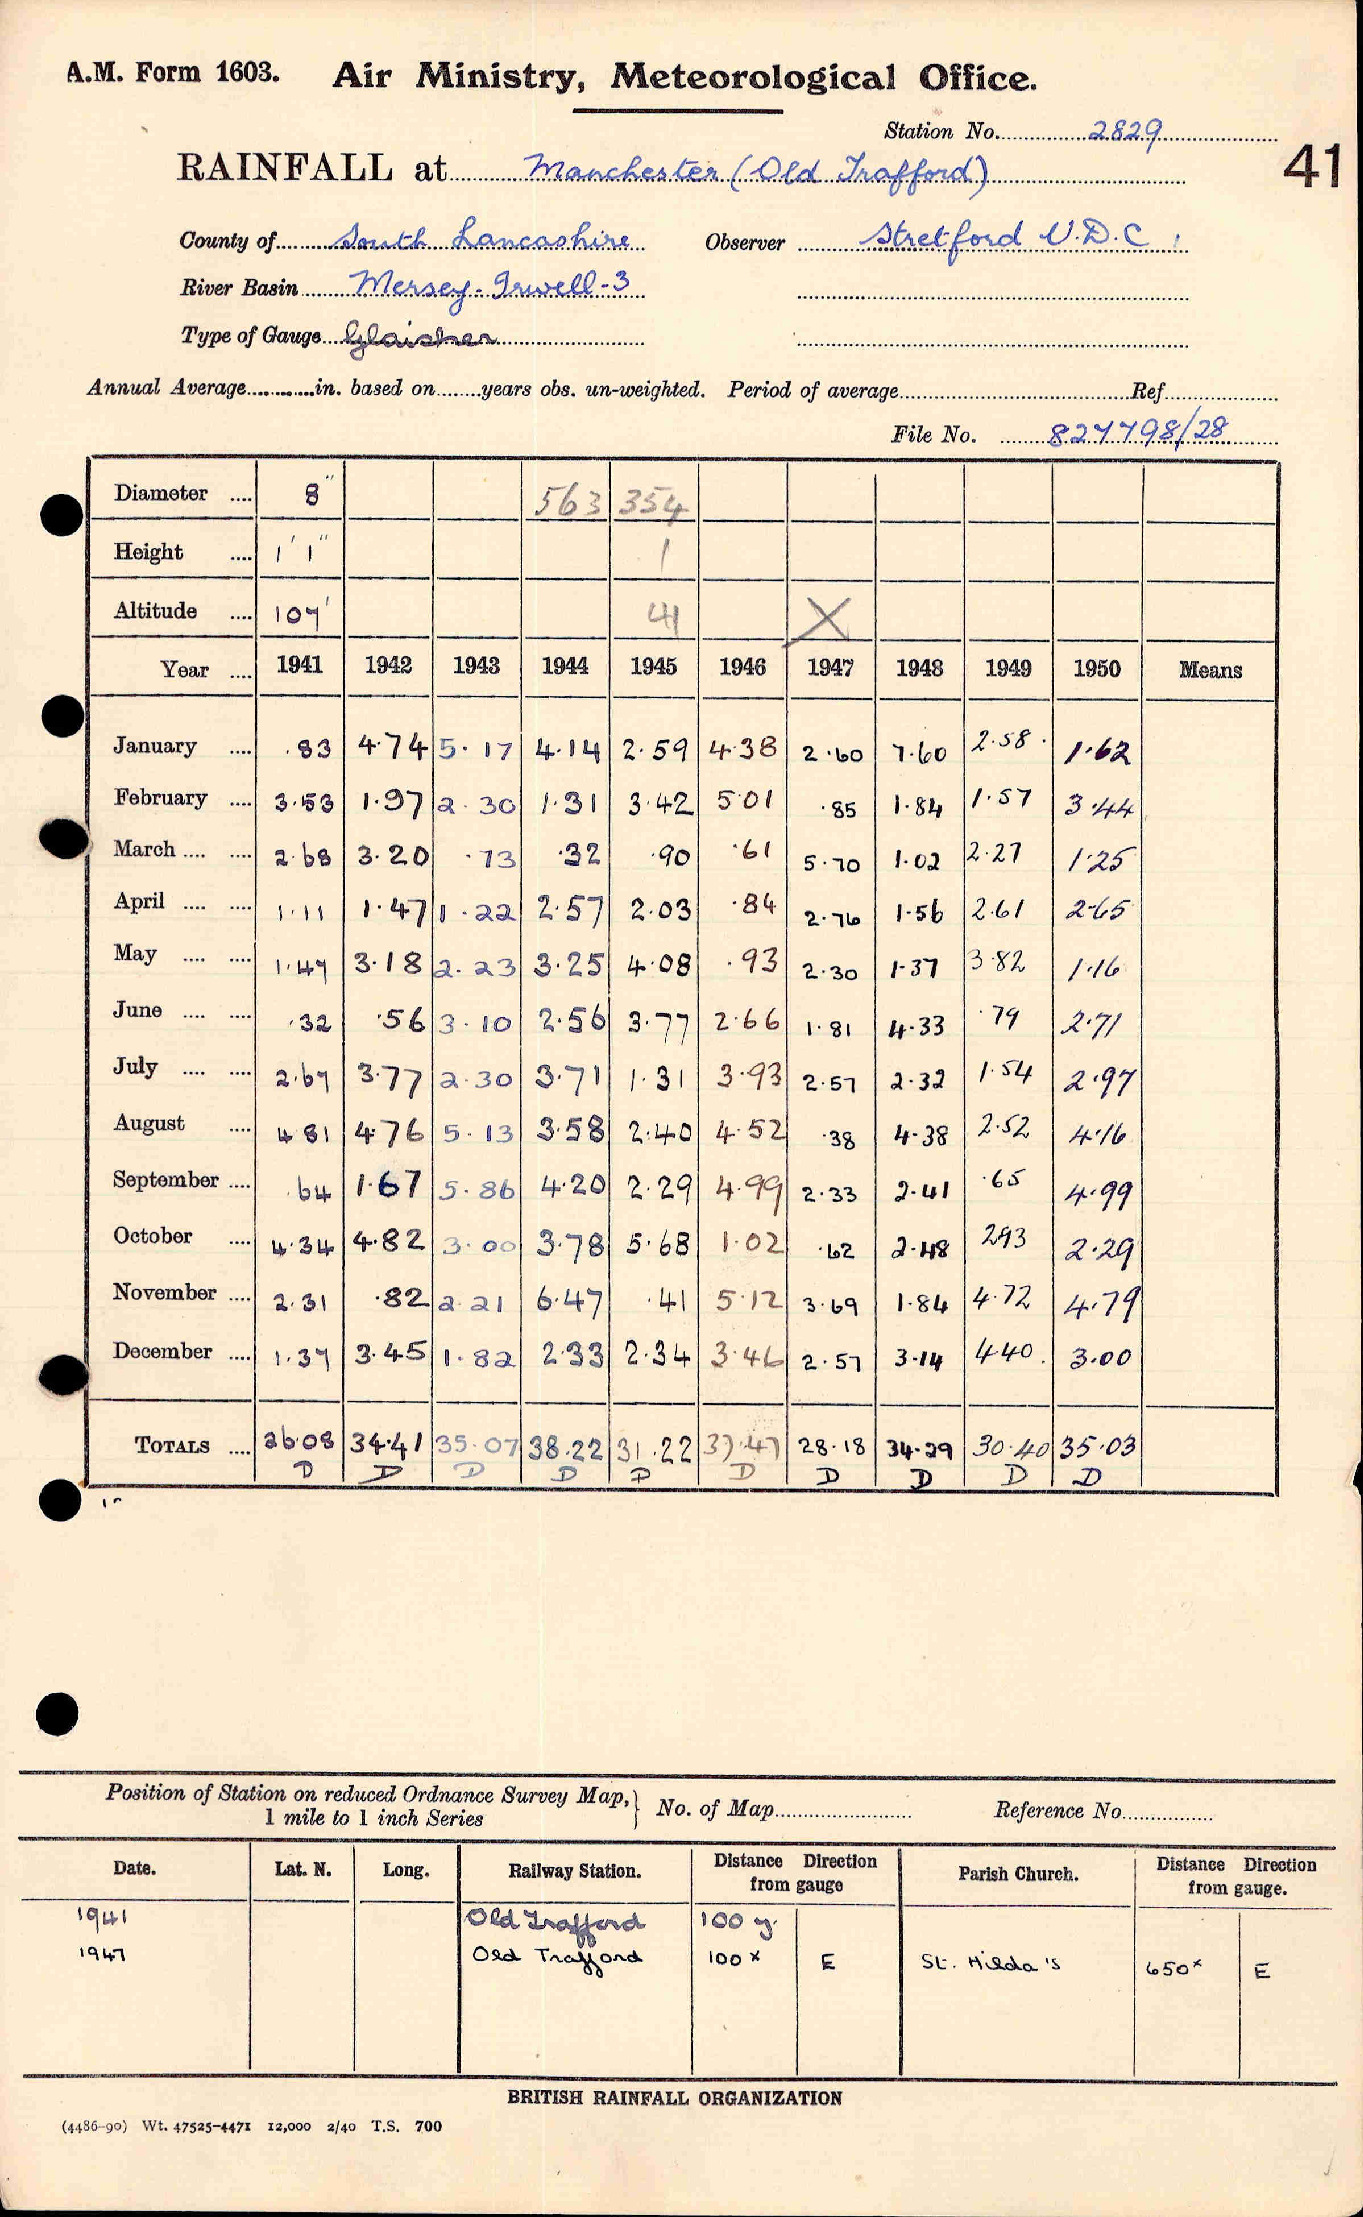 A.M. Form 1603. Air Ministry, Meteorological Office.
Station No. 2829
41
RAINFALL at Manchester (Old Trafford)
County of South Lancashire Observer Stretford U.D.C.
River Basin Mersey-Irwell-3
Type of Gauge Glaisher
Annual Average in. based on years obs. un-weighted. Period of average Ref.
File No. 827798/28
Diameter .... 8" 563 354
Height .... 1' 1" 1
Altitude .... 107' 41 X
Year .... 1941 1942 1943 1944 1945 1946 1947 1948 1949 1950 Means
January .... .83 4.74 5.17 4.14 2.59 4.38 2.60 7.60 2.58 1.62
February .... 3.53 1.97 2.30 1.31 3.42 5.01 .85 1.84 1.57 3.44
March .... .... 2.68 3.20 .73 .32 .90 .61 5.70 1.02 2.27 1.25
April .... .... 1.11 1.47 1.22 2.57 2.03 .84 2.76 1.56 2.61 2.65
May .... .... 1.47 3.18 2.23 3.25 4.08 .93 2.30 1.37 3.82 1.16
June .... .... .32 .56 3.10 2.56 3.77 2.66 1.81 4.33 .79 2.71
July .... .... 2.67 3.77 2.30 3.71 1.31 3.93 2.57 2.32 1.54 2.97
August .... 4.81 4.76 5.13 3.58 2.40 4.52 .38 4.38 2.52 4.16
September .... .64 1.67 5.86 4.20 2.29 4.99 2.33 2.41 .65 4.99
October .... 4.34 4.82 3.00 3.78 5.68 1.02 .62 2.48 2.93 2.29
November .... 2.31 .82 2.21 6.47 .41 5.12 3.69 1.84 4.72 4.79
December .... 1.37 3.45 1.82 2.33 2.34 3.46 2.57 3.14 4.40 3.00
TOTALS .... 26.08 34.41 35.07 38.22 31.22 37.47 28.18 34.29 30.40 35.03
D D D D D D D D D D
Position of Station on reduced Ordnance Survey Map,} No. of Map Reference No.
1 mile to 1 inch Series
Date. Lat. N. Long. Railway Station. Distance Direction from gauge Parish Church. Distance Direction from gauge.
1941 Old Trafford 100 y.
1947 Old Trafford 100 x E St. Hilda's 650 x E
BRITISH RAINFALL ORGANIZATION
(4486-90) Wt. 47525-4471 12,000 2/40 T.S. 700